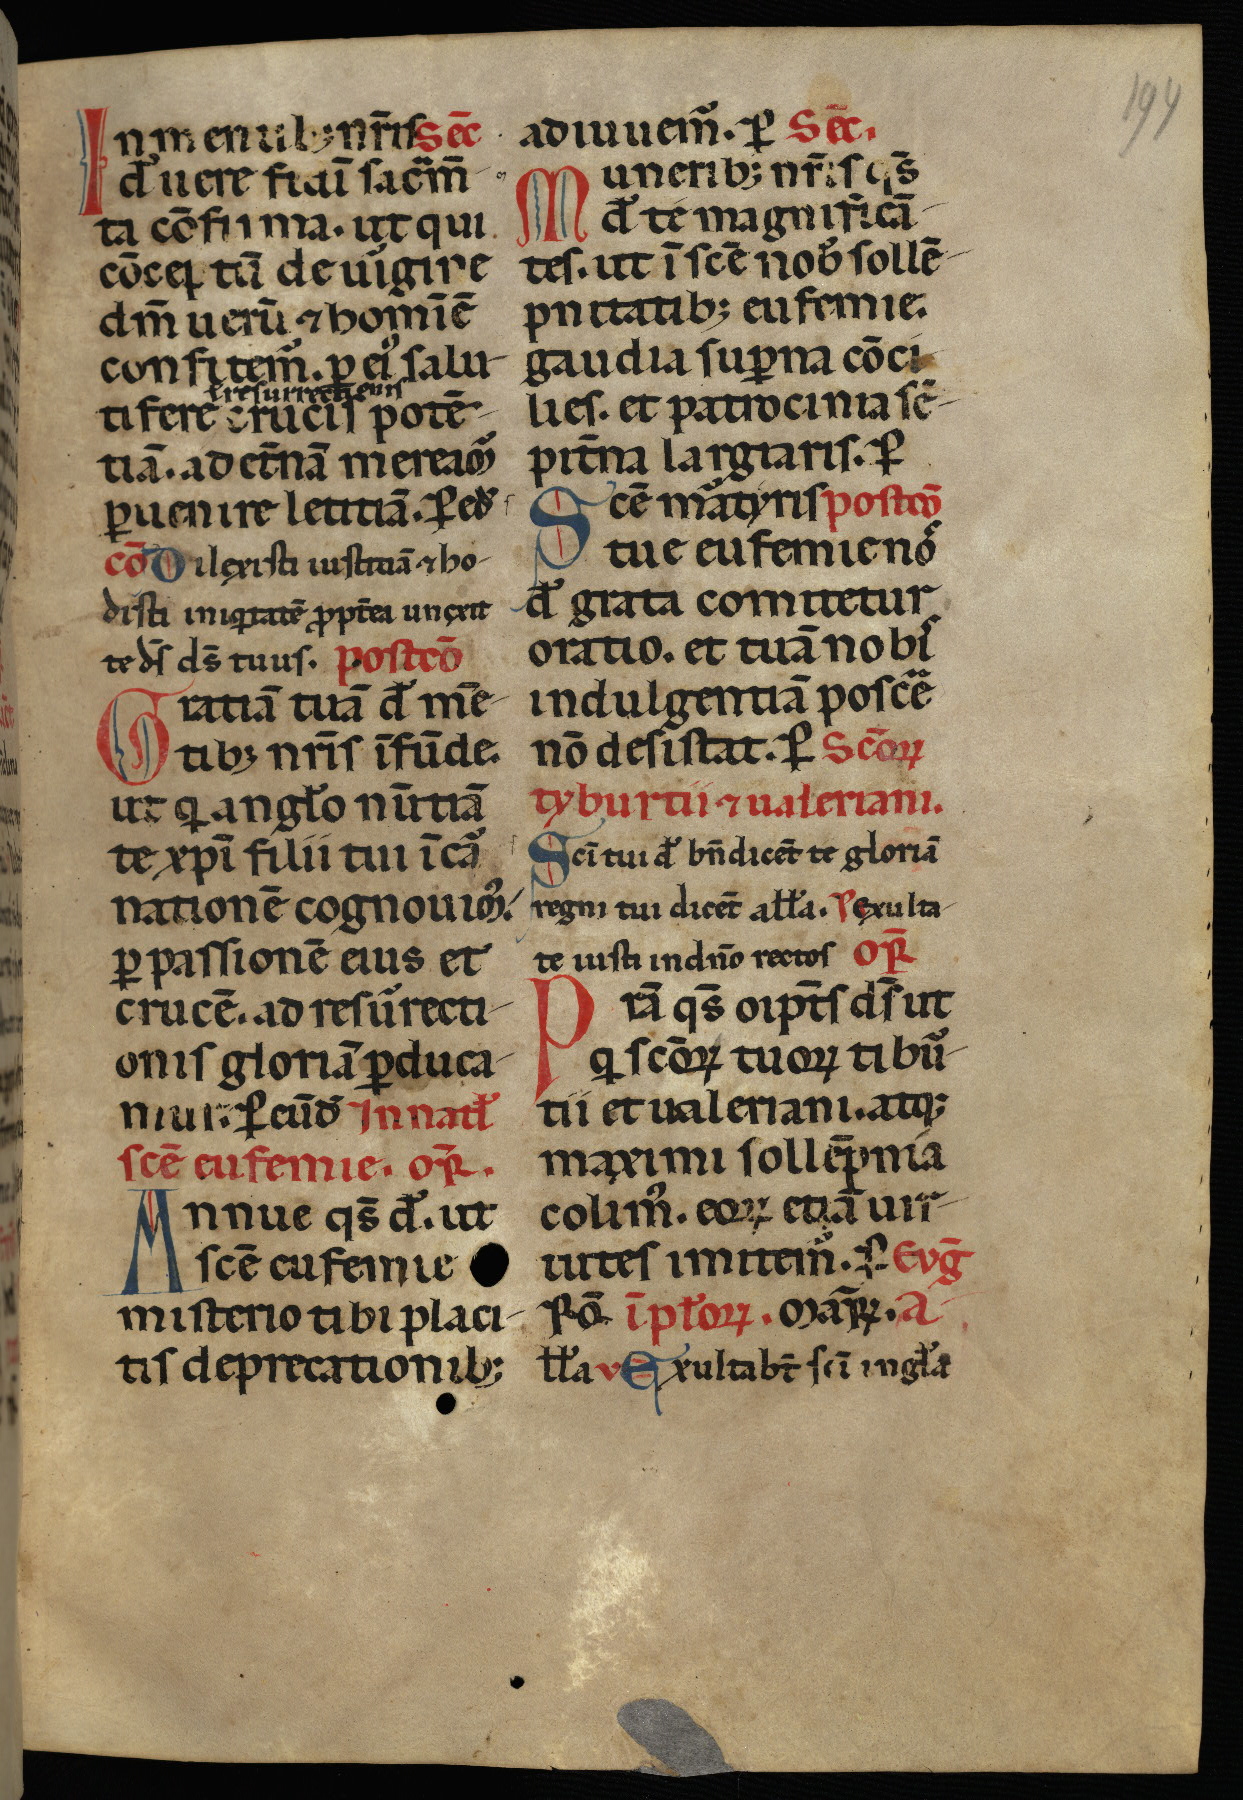 194
In mentibꝫ nr̄is Sec̄
d̄ uere fidei sac̄m̄
ta cōfirma. ut qui
cōceptū de uigīne
dm̄ uerū ⁊ homīē
confitem᷒. ꝑ ei᷒ salu
⁊ resurrectionis
tifere crucis potē
tiā. ad et̄nā meream᷒
ꝑuenire letitiā. ꝑ eūd
cō Dilexisti iustitiā ⁊ ho
disti iniqͥtatē ꝓpt̄ea unxit
te ds̄ ds̄ tuus. postcō
Gratiā tuā d̄ mē
tibꝫ nr̄is īfūde.
ut qͥ anglo nūtiā
te xp̄i filii tui īcar
nationē cognouim᷒.
ꝑ passionē eius et
crucē. ad resurrecti
onis gloriā ꝑduca
mur. ꝑ eūd In natł
scē eufemie. or̄.
Annue qs̄ d̄. ut
scē eufemie
misterio tibi placi
tis deprecationibꝫ
adiuuem᷒. ꝑ Sec̄.
Muneribꝫ nr̄is qs̄
d̄ te magnificā
tes. ut ī scē nob̄ sollē
pnitatibꝫ eufemie.
gaudia suꝑna cōci
lies. et patrocinia sē
pit̄na largiaris. ꝑ
Scē martyris postcō
tue eufemie nos
d̄ grata comitetur
oratio. et tuā nobis
indulgentiā poscē
nō desistat. ꝑ Scōꝝ
tyburtii ⁊ ualeriani.
Sc̄i tui d̄ bn̄dicēt te gloriā
regni tui dicēt alła. V̓ exulta
te iusti in dn̄o rectos or̄
Prā qs̄ oip̄ts ds̄ ut
qͥ scōꝝ tuoꝝ tibur
tii et ualeriani. atqꝫ
maximi sollēpnia
colim᷒. eoꝝ etiā uir
tutes imitem᷒. ꝑ Evḡ
Rō ī płoꝝ. mar̄ꝝ. A
łła v Exultabt̄ sc̄i in głia